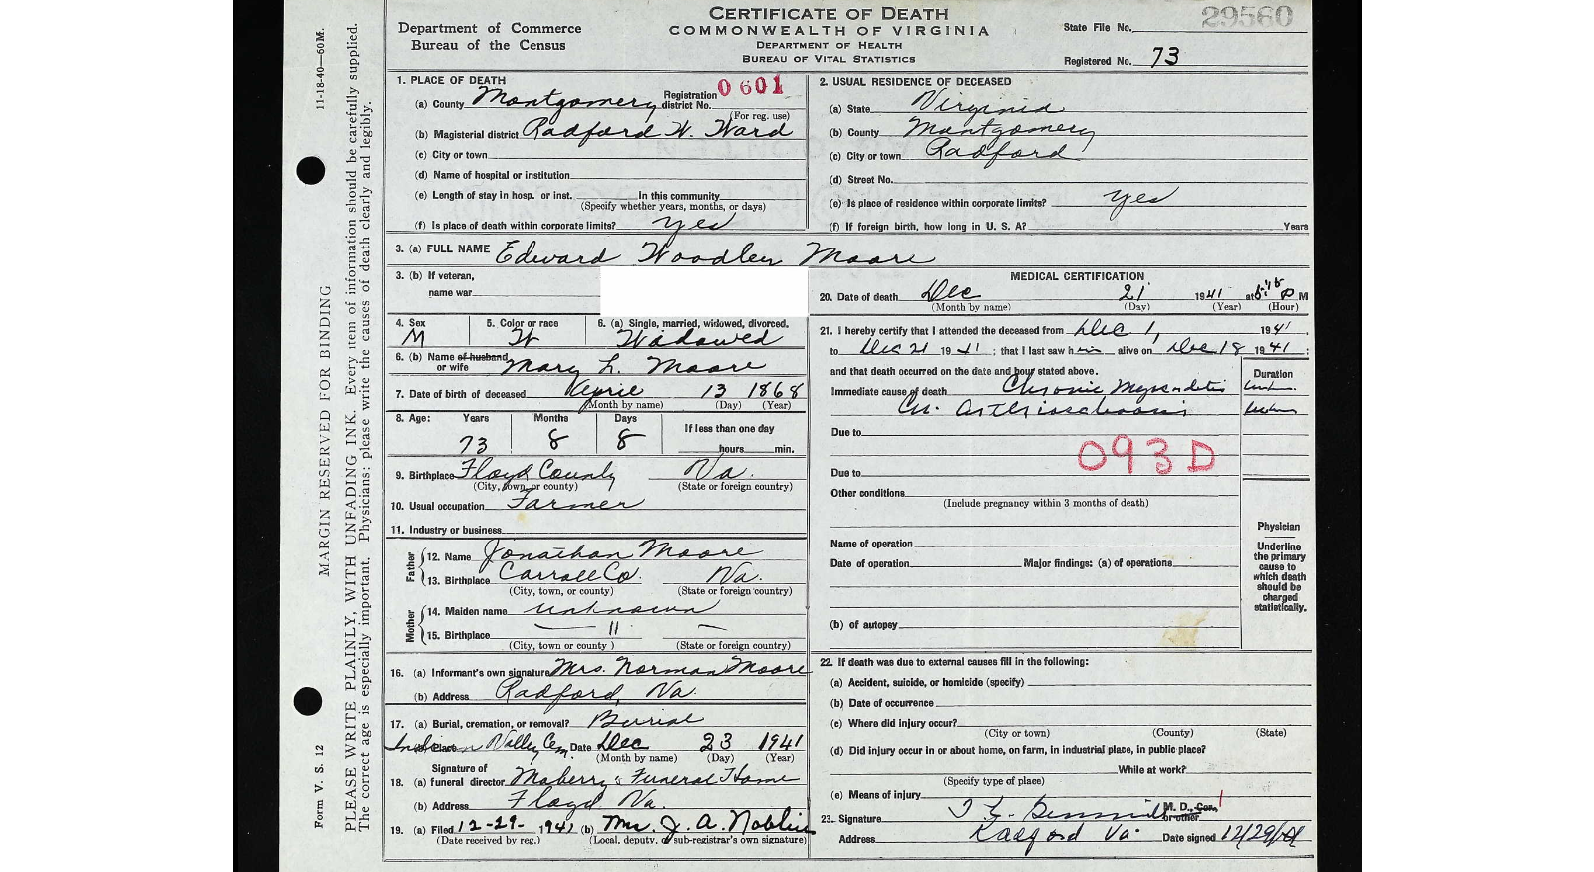 CERTIFICATE OF DEATH
COMMONWEALTH OF VIRGINIA
DEPARTMENT OF HEALTH
BUREAU OF VITAL STATISTICS
Department of Commerce
Bureau of the Census
29560
State File No.
Registered No. 73
11-18-40—60M.
MARGIN RESERVED FOR BINDING
PLEASE WRITE PLAINLY, WITH UNFADING INK. Every item of information should be carefully supplied.
The correct age is especially important. Physicians: please write the causes of death clearly and legibly.
Form V. S. 12
1. PLACE OF DEATH
Registration district No. 0601
(a) County Montgomery
(For reg. use)
(b) Magisterial district Radford W. Ward
(c) City or town
(d) Name of hospital or institution
(e) Length of stay in hosp. or inst. In this community
(Specify whether years, months, or days)
(f) Is place of death within corporate limits? yes
2. USUAL RESIDENCE OF DECEASED
(a) State Virginia
(b) County Montgomery
(c) City or town Radford
(d) Street No.
(e) Is place of residence within corporate limits? yes
(f) If foreign birth, how long in U. S. A? Years
3. (a) FULL NAME Edward Woodley Moore
3. (b) If veteran,
name war
4. Sex M
5. Color or race W
6. (a) Single, married, widowed, divorced. Widowed
6. (b) Name of husband or wife Mary L. Moore
7. Date of birth of deceased April 13 1868
(Month by name) (Day) (Year)
8. Age: Years Months Days If less than one day
73 8 8 hours min.
9. Birthplace Floyd County Va.
(City, town, or county) (State or foreign country)
10. Usual occupation Farmer
11. Industry or business
Father
12. Name Jonathan Moore
13. Birthplace Carroll Co. Va.
(City, town, or county) (State or foreign country)
Mother
14. Maiden name unknown
15. Birthplace — 11 —
(City, town or county ) (State or foreign country)
16. (a) Informant's own signature Mrs. Norman Moore
(b) Address Radford, Va.
17. (a) Burial, cremation, or removal? Burial
(b) Place Indian Valley Cem. Date Dec 23 1941
(Month by name) (Day) (Year)
Signature of
18. (a) funeral director Maberry's Funeral Home
(b) Address Floyd, Va.
19. (a) Filed 12-29- 1941 (b) Mrs. J. A. Noblin
(Date received by reg.) (Local, deputy, or sub-registrar's own signature)
MEDICAL CERTIFICATION
20. Date of death Dec 21 1941 at P M
(Month by name) (Day) (Year) (Hour)
21. I hereby certify that I attended the deceased from Dec 1, 1941
to Dec 21 1941; that I last saw him alive on Dec 18 1941;
and that death occurred on the date and hour stated above.
Duration
Immediate cause of death Chronic Myocarditis
Ch.
Due to
093D
Due to
Other conditions
(Include pregnancy within 3 months of death)
Name of operation
Date of operation Major findings: (a) of operations
(b) of autopsy
Physician
Underline
the primary
cause to
which death
should be
charged
statistically.
22. If death was due to external causes fill in the following:
(a) Accident, suicide, or homicide (specify)
(b) Date of occurrence
(c) Where did injury occur?
(City or town) (County) (State)
(d) Did injury occur in or about home, on farm, in industrial place, in public place?
While at work?
(Specify type of place)
(e) Means of injury
23. Signature M. D., Cor., or other
Address Radford Va. Date signed 12/29/41